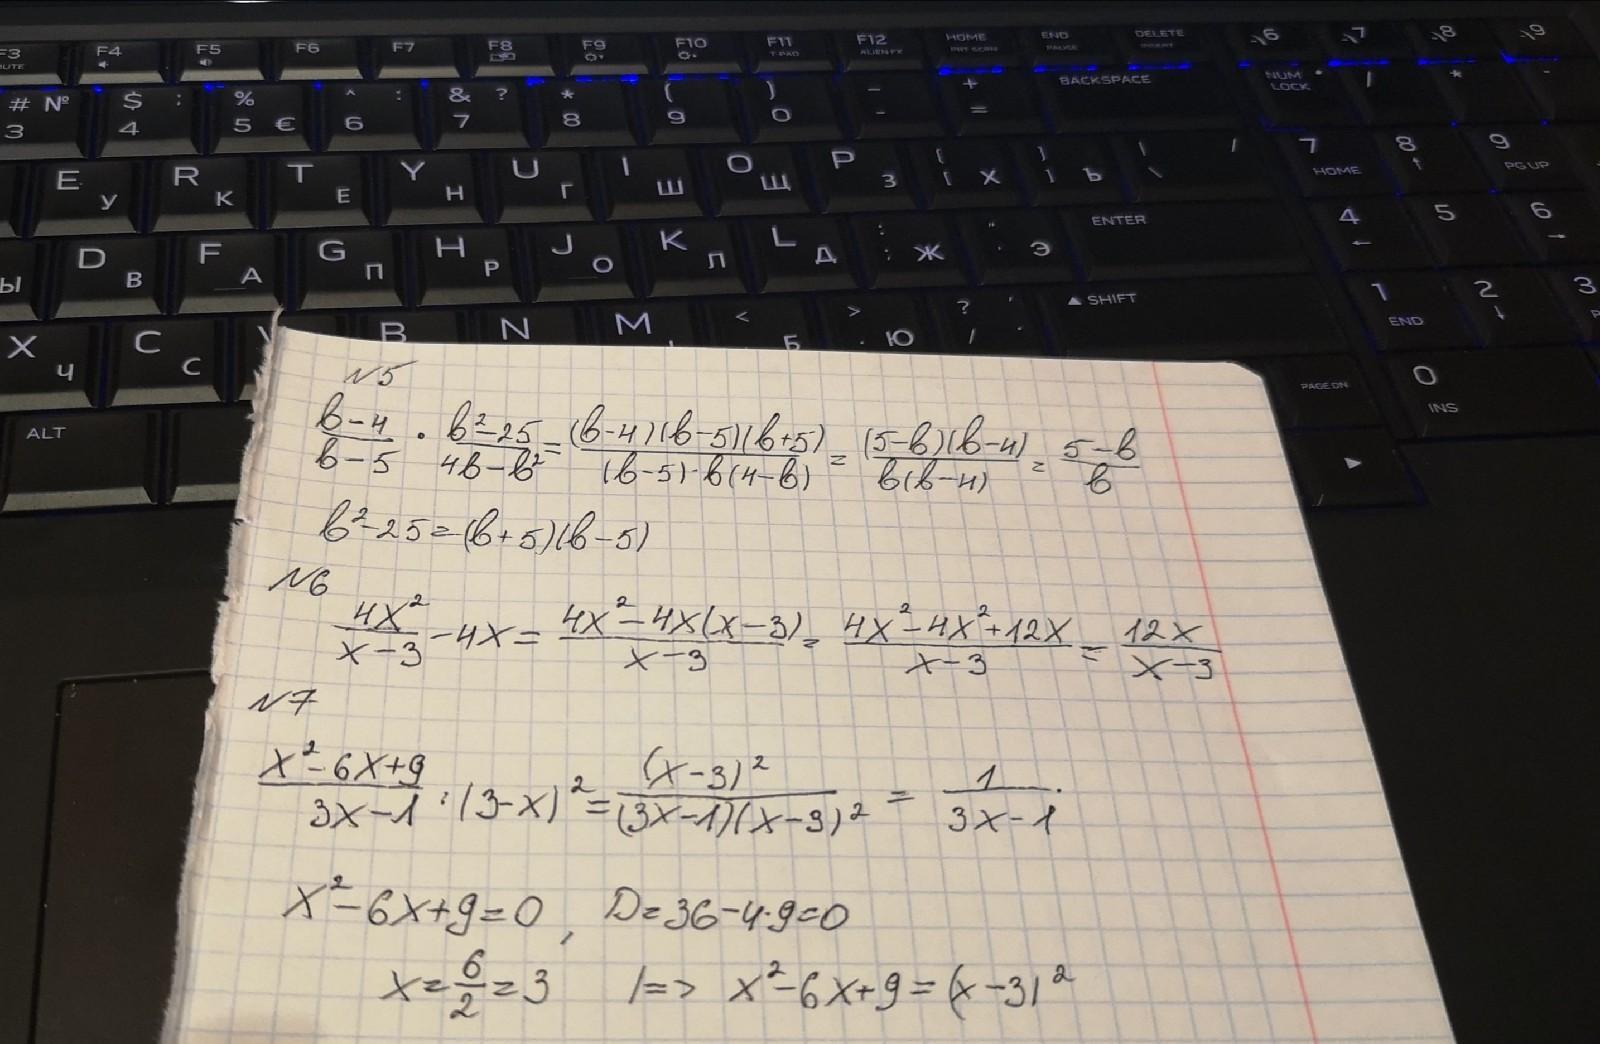 F3 F4 F5 F6 F7 F8 F9 F10 F11 F12 HOME END DELETE 6 7 8 9
UTE T-PAD ALIENFX PRT SCRN PAUSE INSERT
# № $ : % ^ : & ? * ( ) - + BACKSPACE NUM LOCK / * -
3 4 5 € 6 7 8 9 0 - =
E У R К T Е Y Н U Г I Ш O Щ P З [ Х ] Ъ | \ / 7 HOME 8 ↑ 9 PG UP
Ы D В F А G П H Р J О K Л L Д : ; Ж " ' Э ENTER 4 ← 5 6 →
X Ч C С V B N M , < Б > . Ю ? / ▲ SHIFT 1 END 2 ↓ 3
ALT PAGE DN 0 INS
▶
N5
(b-4)/(b-5) · (b²-25)/(4b-b²) = ((b-4)(b-5)(b+5))/((b-5)·b(4-b)) = ((5-b)(b-4))/(b(b-4)) = (5-b)/b
b²-25=(b+5)(b-5)
N6
4x²/(x-3) - 4x = (4x²-4x(x-3))/(x-3) = (4x²-4x²+12x)/(x-3) = 12x/(x-3)
N7
(x²-6x+9)/(3x-1) : (3-x)² = (x-3)²/((3x-1)(x-3)²) = 1/(3x-1).
x²-6x+9=0, D=36-4·9=0
x=6/2=3 |=> x²-6x+9=(x-3)²